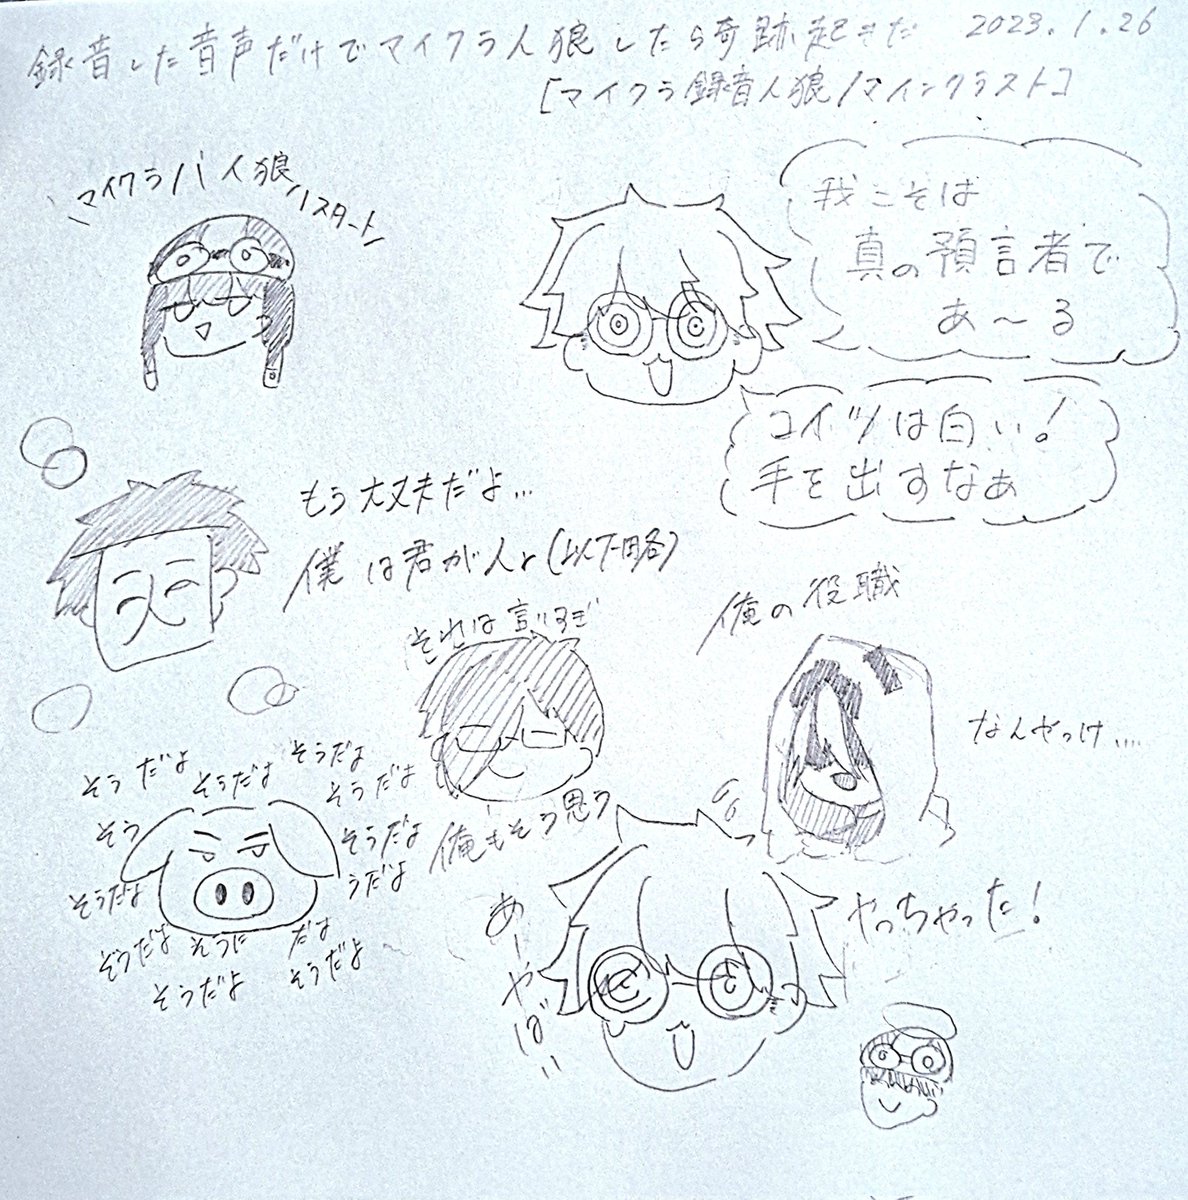 録音した音声だけでマイクラ人狼したら奇跡起きた 2023.1.26
[マイクラ録音人狼/マインクラスト]
マイクラ人狼
スタート
我こそは
真の預言者で
あ〜る
コイツは白い!
手を出すなぁ
もう大丈夫だよ…
僕は君が人と(以下略)
それは言いすぎ
俺もそう思う
俺の役職
なんやっけ….
そうだよ
そうだよ
そうだよ
そうだよ
そう
そうだよ
うだよ
そうだよ
そうだよ
そうに
だよ
そうだよ
そうだよ
あーやばい
やっちゃった!